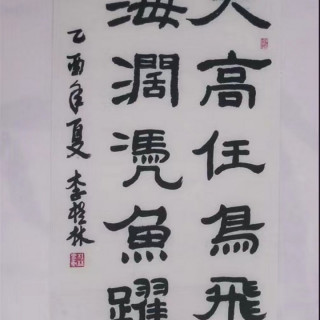 天高任鳥飛
海濶凴魚躍
乙酉年夏 李桂林